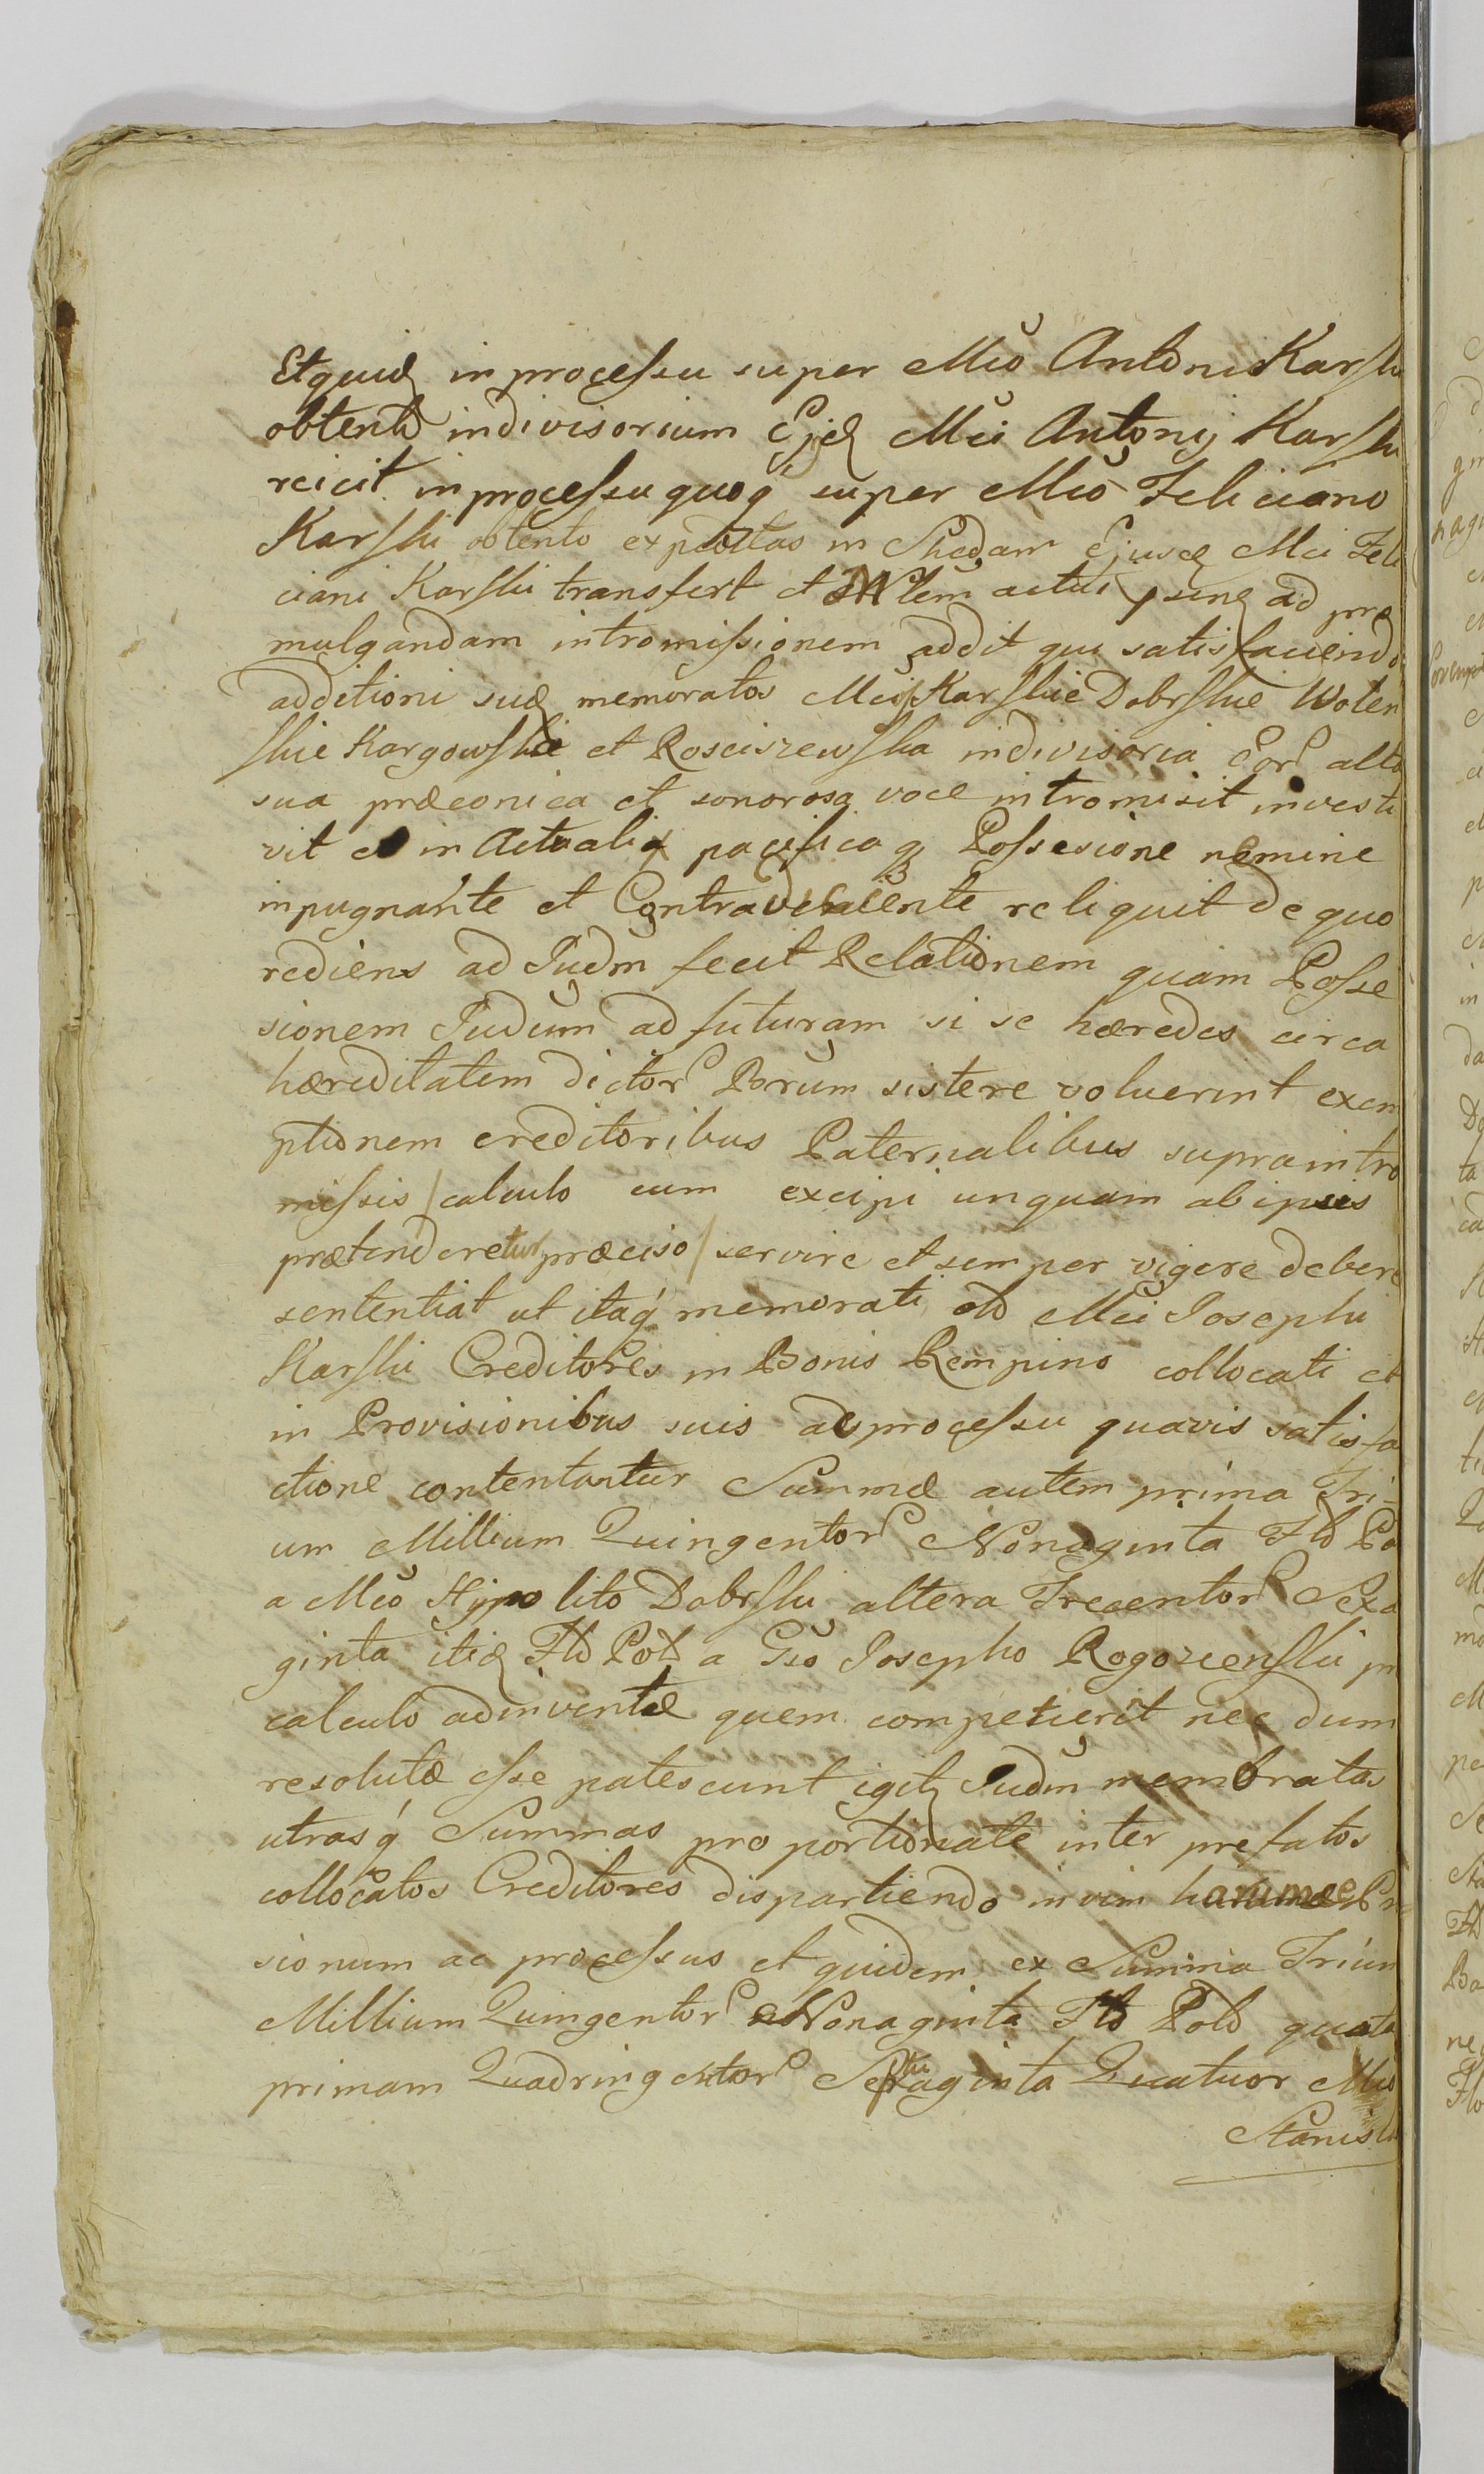 Et quid in processu super Mco Antoni Karski
obtento indivisorium Ejd Mci Antonij Karski
reicit in processu quoq super Mco Feliciano
Karski obtento expositas in Shedam Ejusd Mci Feli
ciani Karski transfert et actui psenq ad pro
mulgandam intromissionem addit qui satisfaciendo
additioni suæ memoratos Mcos Karskie Dobrskie Wołen
skie Kargowskie et Rosciszewska indivisoria Eor alta
sua præconica et sonorosa voce intromisit investi
vit et in Actuali pacificaq Possesione nemine
inpugnante et Contravenicente reliquit de quo
rediens ad Judm fecit Relationem quam Posse
sionem Judium ad futuram si se hæredes circa
hæreditatem dictor Brum sistere voluerint exem
ptionem creditoribus Paternalibus supra intro
missis / calculo cum excipi unquam ab ipsis
prætenderetur præciso / servire et semper vigere debere
sententiat ut itaq memorati olo Mci Josephi
Karski Creditores in Bonis Rempino collocati et
in Provisionibus suis ac processu quavis satisfa
ctione contentantur Summæ autem prima Tri-
um Millium Quingentor Nonaginta Flo Po
a Mco Hypolito Dobrski altera Trecentor Sexa
ginta itid Flo Pol a Gso Josepho Rogozienski in
calculo adinventæ quem competierit nec dum
resolutæ esse patescunt igitq Judm memoratas
utrasq Summas proportionate inter prefatos
collocatos Creditores dispartiendo in vim harumce Pro
sionum ac processus et quidem ex Summa Trium
Millium Quingentor Nonaginta Flo Pol quota
primam Quadringentor Septuaginta Quatuor Mco
Stanisla